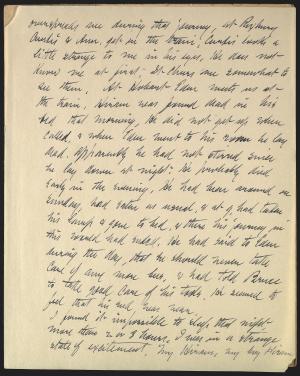 me during that journey, at Roxbury
Curtis & Ann, got in the train, Curtis looks a
little strange to me in his eyes, He does not
know me at first. It cheers me somewhat to
see them. At Hobart Eden meets us at
the train, Hiram was found dead in his
bed that morning. He did not get up when
called, & when Eden went to his room he lay
dead. Apparently he had not stirred since
he lay down at night. He probably died
early in the evening. He had been around on
Sunday, had eaten as usual, & at 9 had taken
his lamp & gone to bed, & there his journey in
this world had ended. He had said to Eden
during the day, that he should never take
care of any more bees, & had told
to take good care of his tools. He seemed to
feel that his end was near.
I found it impossible to sleep that night
more than 2 or 3 hours. I was in a strange
state of excitement. My Hiram, my big Hiram